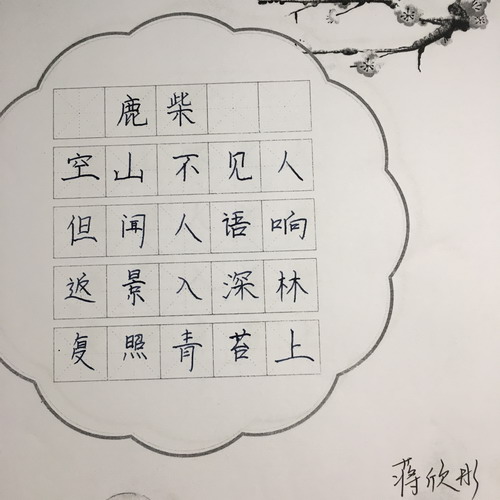 鹿柴
空山不见人
但闻人语响
返景入深林
复照青苔上
蒋欣彤